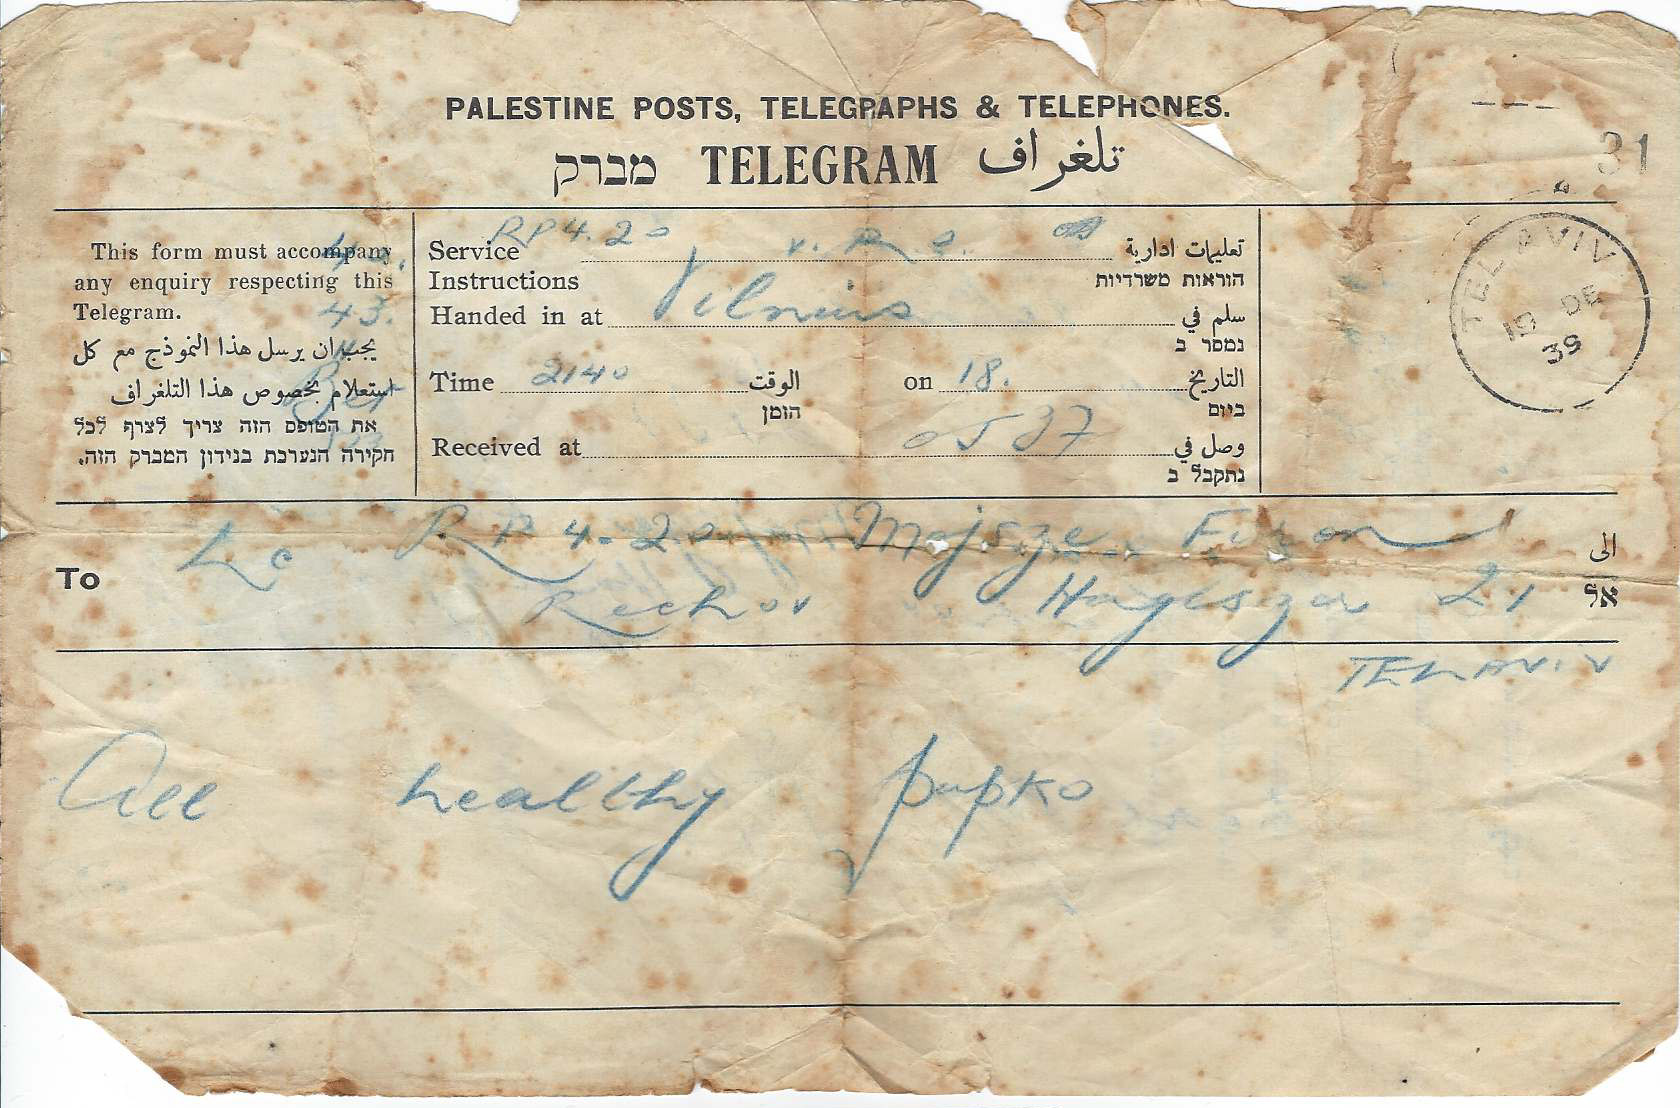 PALESTINE POSTS, TELEGRAPHS & TELEPHONES.
מברק TELEGRAM تلغراف
31
This form must accompany
any enquiry respecting this
Telegram.
43.
يجب ان يرسل هذا النموذج مع كل
استعلام بخصوص هذا التلغراف
את הטופס הזה צריך לצרף לכל
חקירה הנערכת בנידון המברק הזה.
RP 4.20
Service تعليمات ادارية
Instructions הוראות משרדיות
Handed in at Vilnius سلم في
נמסר ב
Time 2140 الوقت on 18. التاريخ
הזמן ביום
Received at 0537 وصل في
נתקבל ב
TEL AVIV
19 DE
39
To Lc RP 4.20 Mojsze Fuzon الى
Rechov Hageszer 21 אל
TELAVIV
All healthy pupko